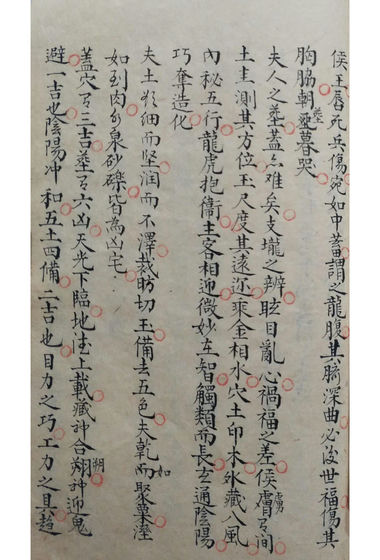 侯王唇死兵傷宛如中蓄謂之龍腹其臍深曲必後世福傷其
胸脇朝葬暮哭
夫人之葬蓋亦难矣支壠之辨眩目亂心禍福之差侯虜有间
土圭測其方位玉尺度其遠迩乘金相水穴土印木外藏八風
內秘五行龍虎抱衞主客相迎微妙在智觸類而長玄通陰陽
巧奪造化
夫土欲細而坚润而不澤裁肪切玉備具五色夫乾而如聚粟溼
如刲肉水泉砂礫皆為凶宅
蓋穴有三吉葬有六凶天光下臨地德上載藏神合朔神迎鬼
避一吉也陰陽冲和五土四備二吉也目力之巧工力之具趋